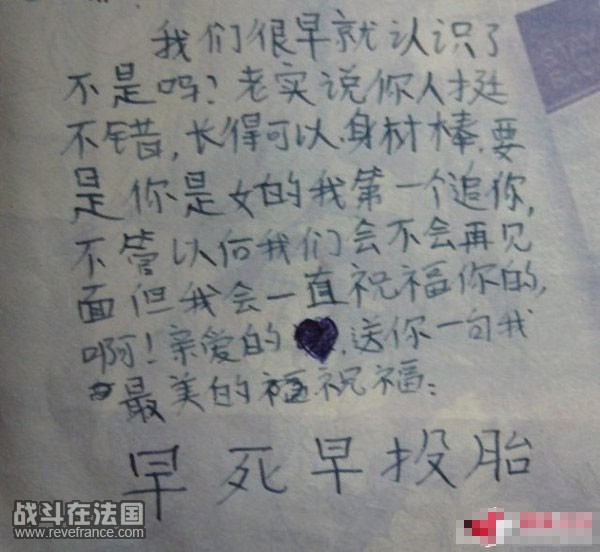 我们很早就认识了
不是吗？老实说你人挺
不错，长得可以.身材棒.要
是你是女的我第一个追你，
不管以后我们会不会再见
面但我会一直祝福你的，
啊！亲爱的♥.送你一句我
最美的祝福：
早死早投胎
战斗在法国
www.revefrance.com